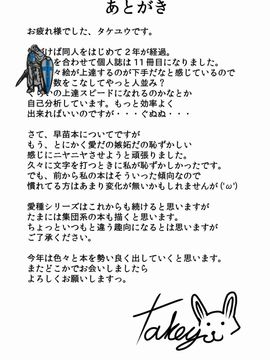 あとがき
お疲れ様でした、タケユウです。
けば同人をはじめて2年が経過。
を合わせて個人誌は11冊目になりました。
々絵が上達するのが下手だなと感じているので
数をこなしてやっと人並み？
いの上達スピードになれるのかなとか
自己分析しています。もっと効率よく
出来ればいいのですが・・・ぐぬぬ・・・
さて、早苗本についてですが
もう、とにかく愛だの嫉妬だの恥ずかしい
感じにニヤニヤさせようと頑張りました。
久々に文字を打つときに私が恥ずかしかったです。
でも、前から私の本はそういった傾向なので
慣れてる方はあまり変化が無いかもしれませんが('ω')
愛種シリーズはこれからも続けると思いますが
たまには集団系の本も描くと思います。
ちょっといつもと違う趣向になるとは思いますが
ご了承ください。
今年は色々と本を勢い良く出していくと思います。
またどこかでお会いしましたら
よろしくお願いしますっ。
Takeyu